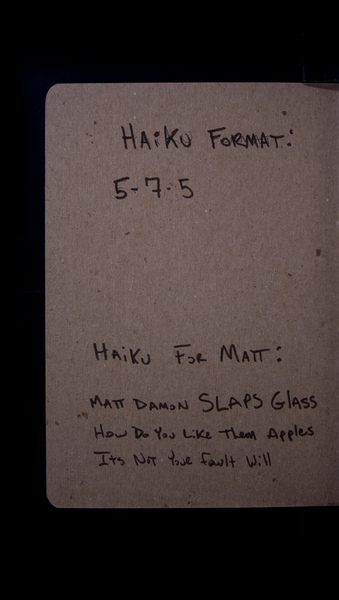 HAiKU FORMAT:
5-7-5
HAiKU FOR MATT:
MATT DAMON SLAPS GlASS
How Do You Like Them Apples
Its Not Your Fault Will